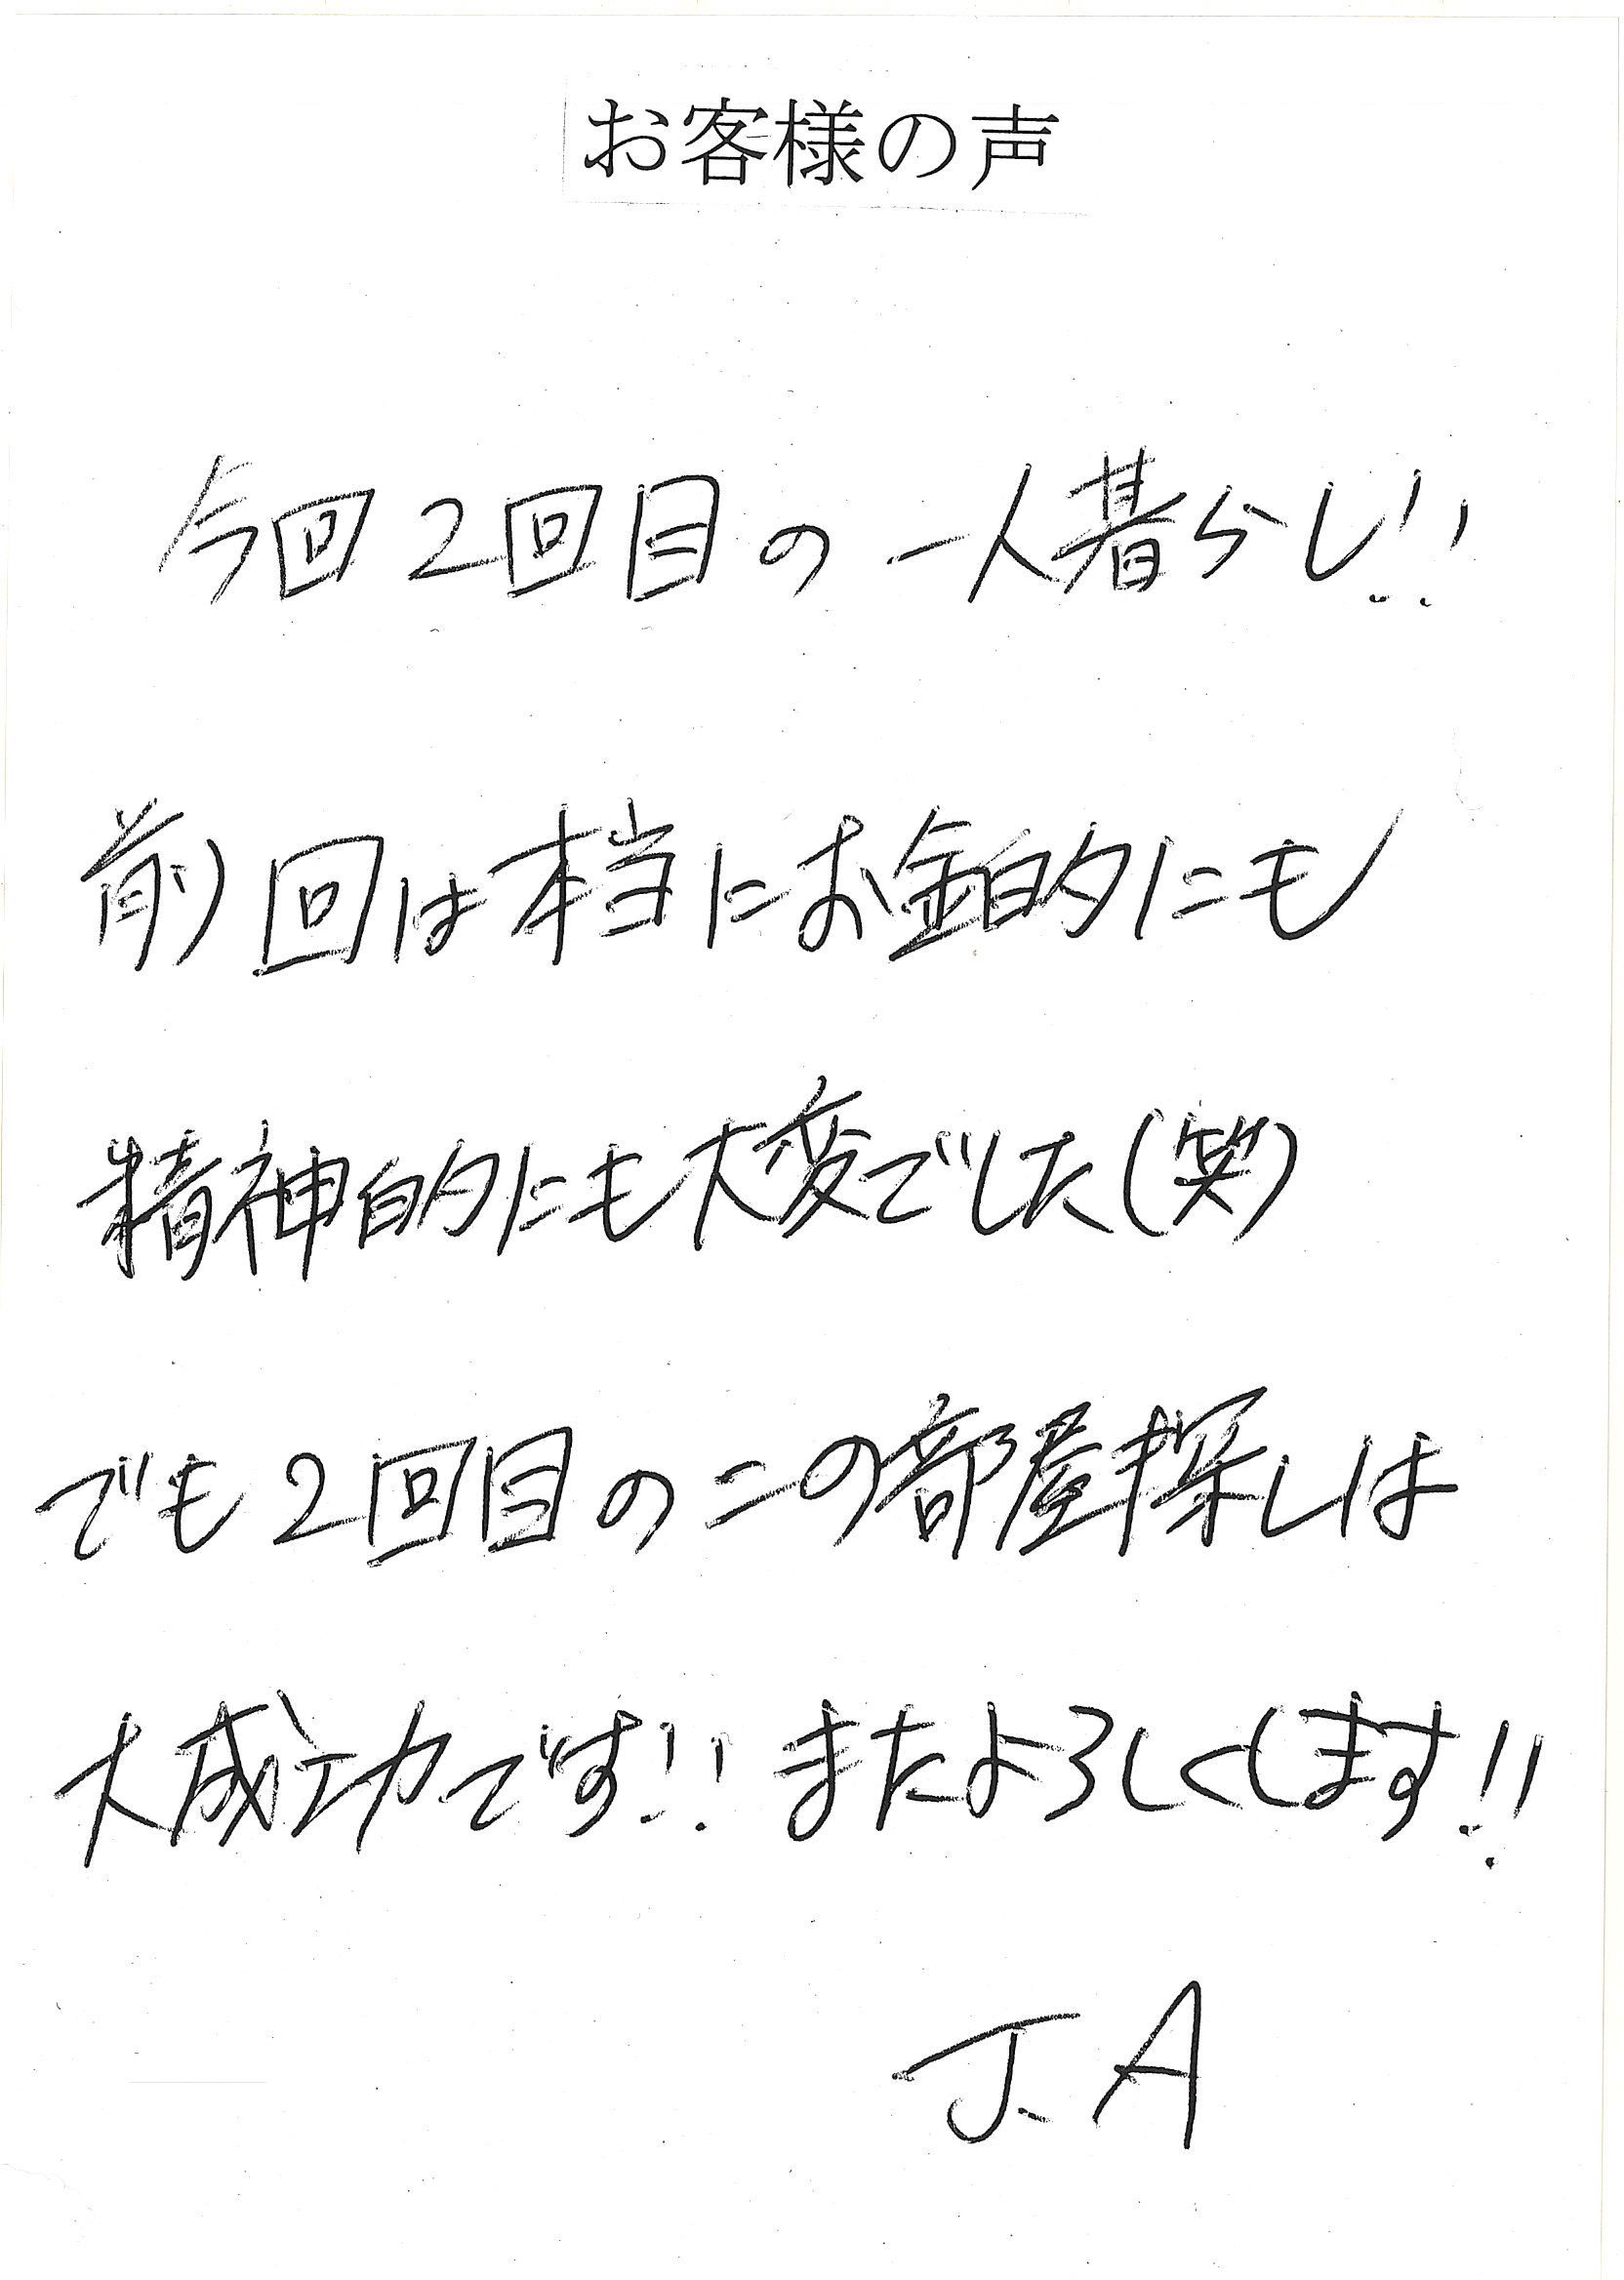 お客様の声
今回2回目の一人暮らし!!
前回は本当にお金的にも
精神的にも大変でした(笑)
でも2回目のこの部屋探しは
大成功です!! またよろしくします!!
J.A